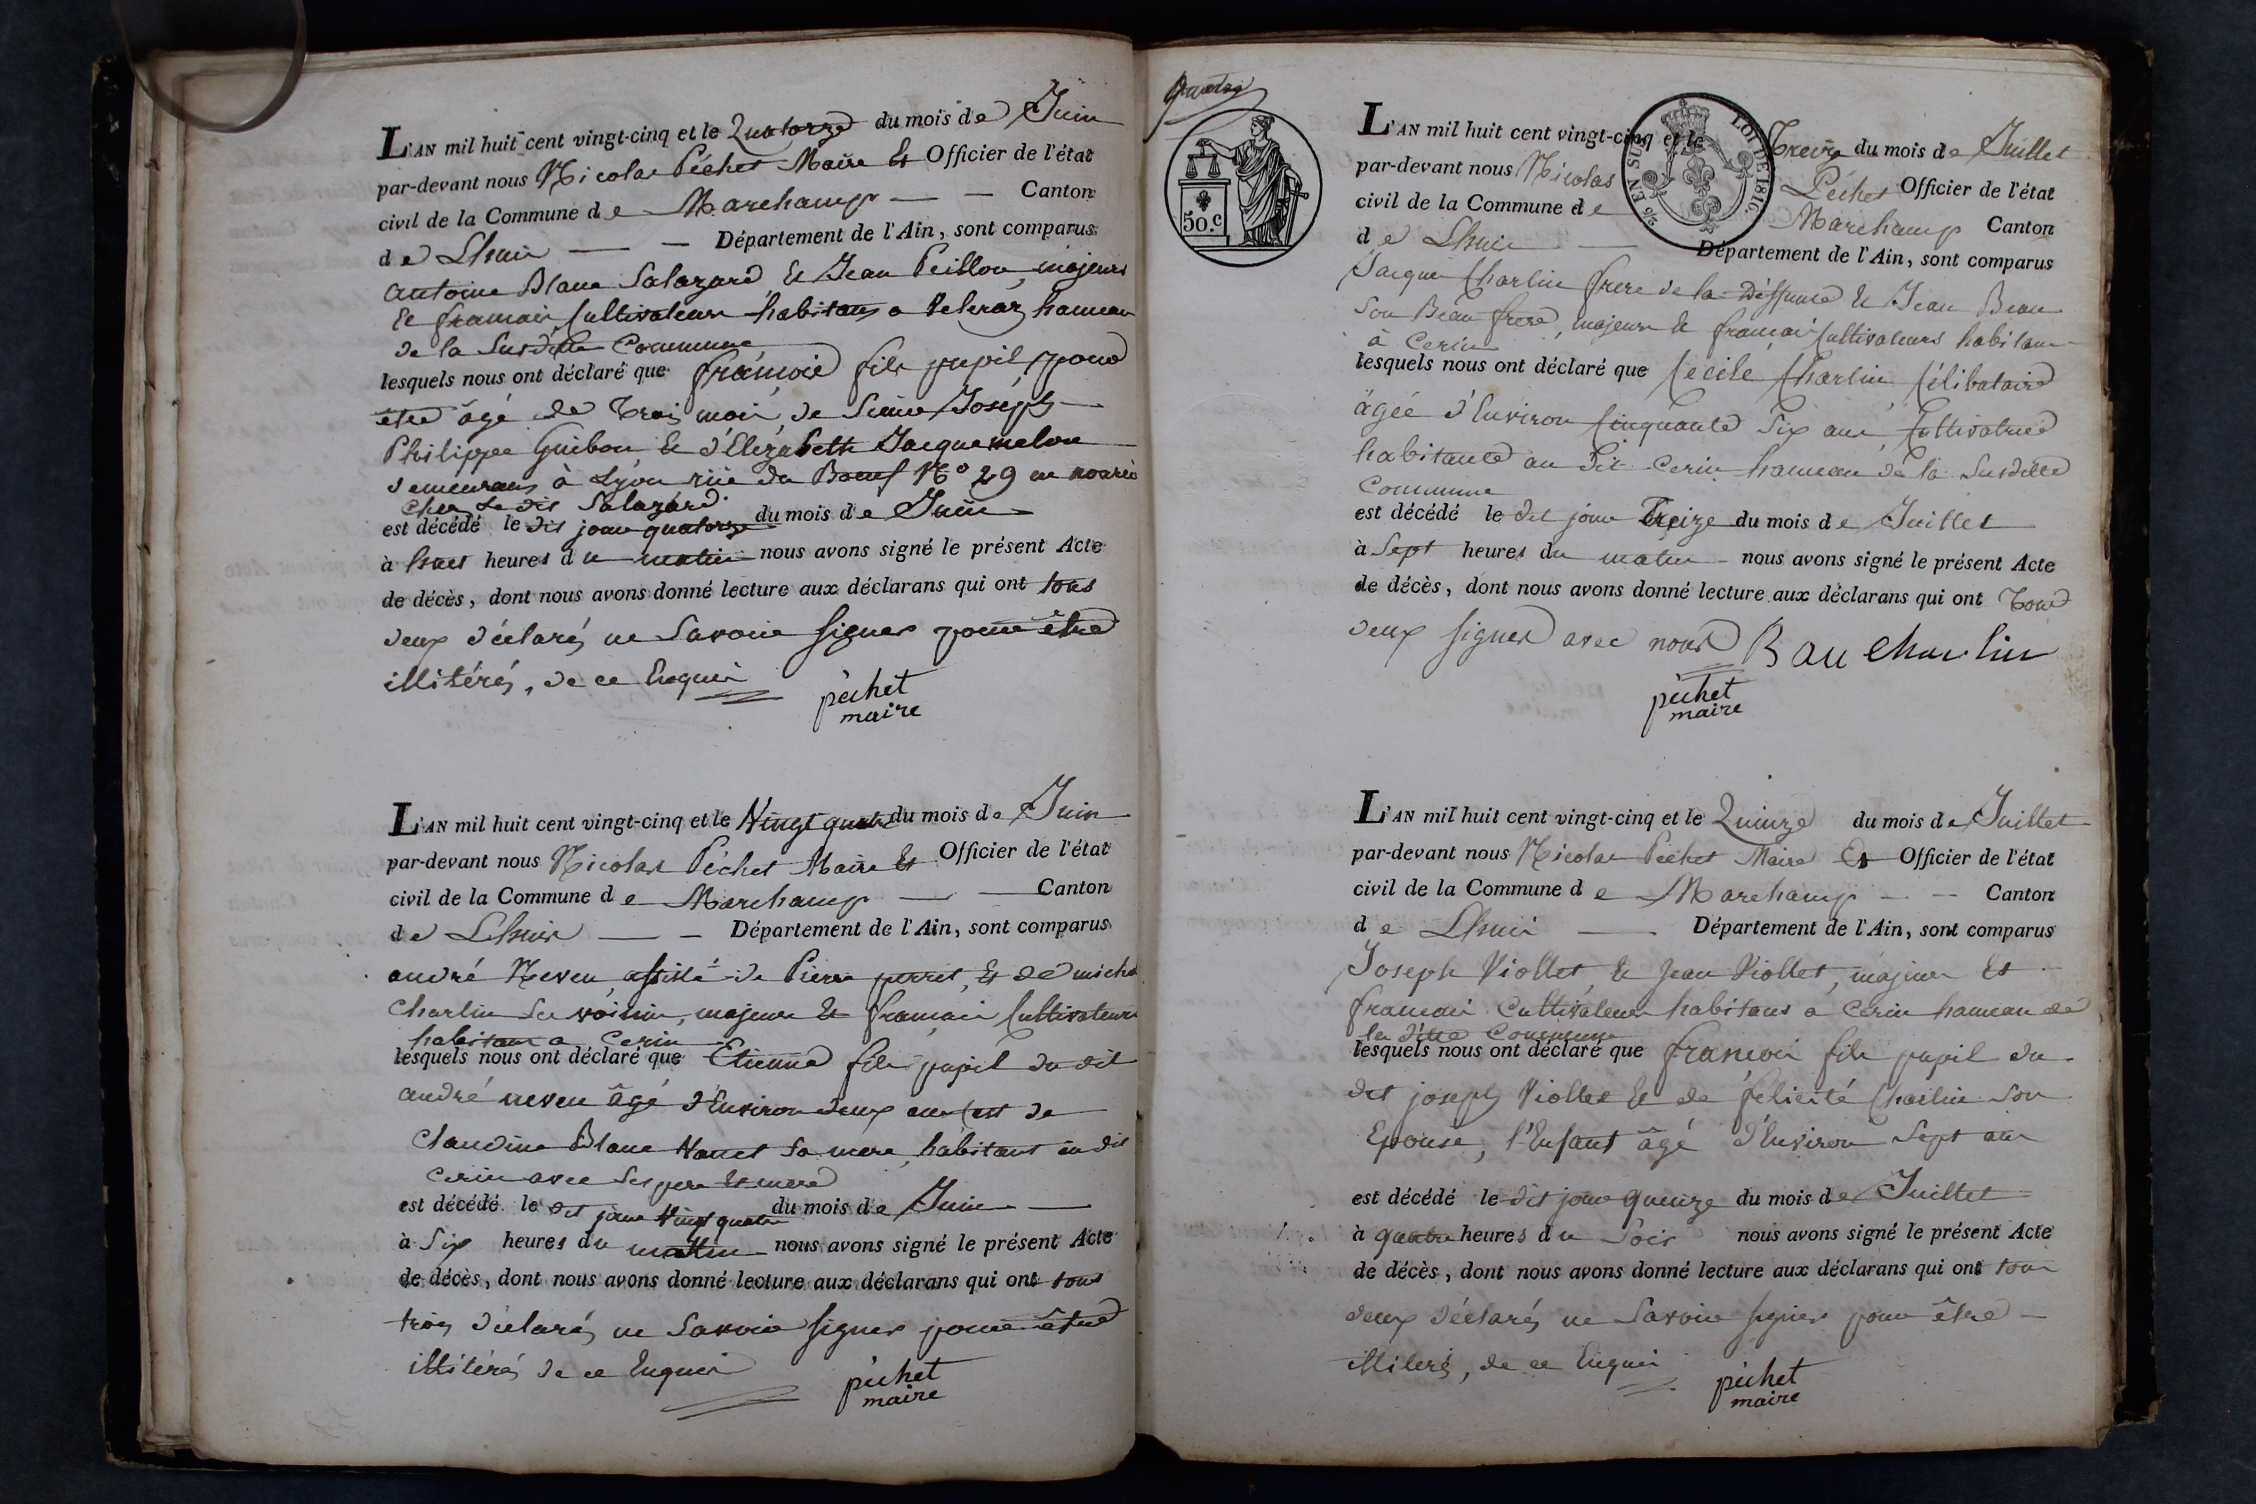 L'AN mil huit cent vingt-cinq et le Quatorze du mois de Juin
par-devant nous Nicolas Péchet Maire Et Officier de l'état
civil de la Commune de Marchamp Canton
de Lhuis Département de l'Ain, sont comparus
antoine Blanc Salazard Et Jean Peillon, majeurs
Et francais Cultivateurs habitans a hameau
de la Susditte Commune
lesquels nous ont déclaré que francois fils pupil pour
être âgé de Trois mois de Sieur Joséph
Philippe Guibou Et d'Elizabeth Jacquemelou
demeurans à Lyon rüe du Boeuf N° 29 en nourice
Chez Le dit Salazard
est décédé le dit jour quatorze du mois de Juin
à heures du matin nous avons signé le présent Acte
de décès, dont nous avons donné lecture aux déclarans qui ont tous
deux déclarés ne Savoir signer pour être
illitérés, de ce Enquis
péchet
maire
L'AN mil huit cent vingt-cinq et le Vingt quatre du mois de Juin
par-devant nous Nicolas Péchet Maire Et Officier de l'état
civil de la Commune de Marchamp Canton
de Lhuis Département de l'Ain, sont comparus
andré Neveu, assisté de Pierre perret, Et de michel
Charlin Ses voisins, majeurs Et francais Cultivateurs
habitans a Cerin
lesquels nous ont déclaré que Etienne fils pupil du dit
andré neveu âgé d'Environ deux ans Et de
Claudine Blanc Nanet Sa mere, habitant au dit
Cerin avec Ses pere Et mere
est décédé le dit jour Vingt quatre du mois de Juin
à Six heures du matin nous avons signé le présent Acte
de décès, dont nous avons donné lecture aux déclarans qui ont tous
trois déclarés ne Savoir signer pour être
illitérés de ce Enquis
péchet
maire
50.C
LOI DE 1816.
EN SUS
L'AN mil huit cent vingt-cinq et le Treize du mois de Juillet
par-devant nous Nicolas Péchet Officier de l'état
civil de la Commune de Marchamp Canton
de Lhuis Département de l'Ain, sont comparus
Jacques Charlin frere de la Déffunte Et Jean Beau
Son Beau frere, majeurs Et francais Cultivateurs habitans
à Cerin
lesquels nous ont déclaré que Cécile Charlin Célibataire
âgée d'Environ Cinquante Six ans, Cultivatrice
habitante au Dit Cerin hameau de la Susditte
Commune
est décédé le dit jour Treize du mois de Juillet
à Sept heures du matin nous avons signé le présent Acte
de décès, dont nous avons donné lecture aux déclarans qui ont Tous
deux signés avec nous Bau Charlin
péchet
maire
L'AN mil huit cent vingt-cinq et le Quinze du mois de Juillet
par-devant nous Nicolas Péchet Maire Et Officier de l'état
civil de la Commune de Marchamp Canton
de Lhuis Département de l'Ain, sont comparus
Joseph Viollet Et Jean Viollet, majeurs Et
francais Cultivateurs habitans a Cerin hameau de
la ditte Commune
lesquels nous ont déclaré que francois fils pupil du
dit joseph Viollet Et de félicité Charlin Son
Epouse, l'Enfant âgé d'Environ Sept ans
est décédé le dit jour quenze du mois de Juillet
à quatre heures du Soir nous avons signé le présent Acte
de décès, dont nous avons donné lecture aux déclarans qui ont tous
deux déclarés ne Savoir signer pour être
illiterés, de ce Enquis
péchet
maire